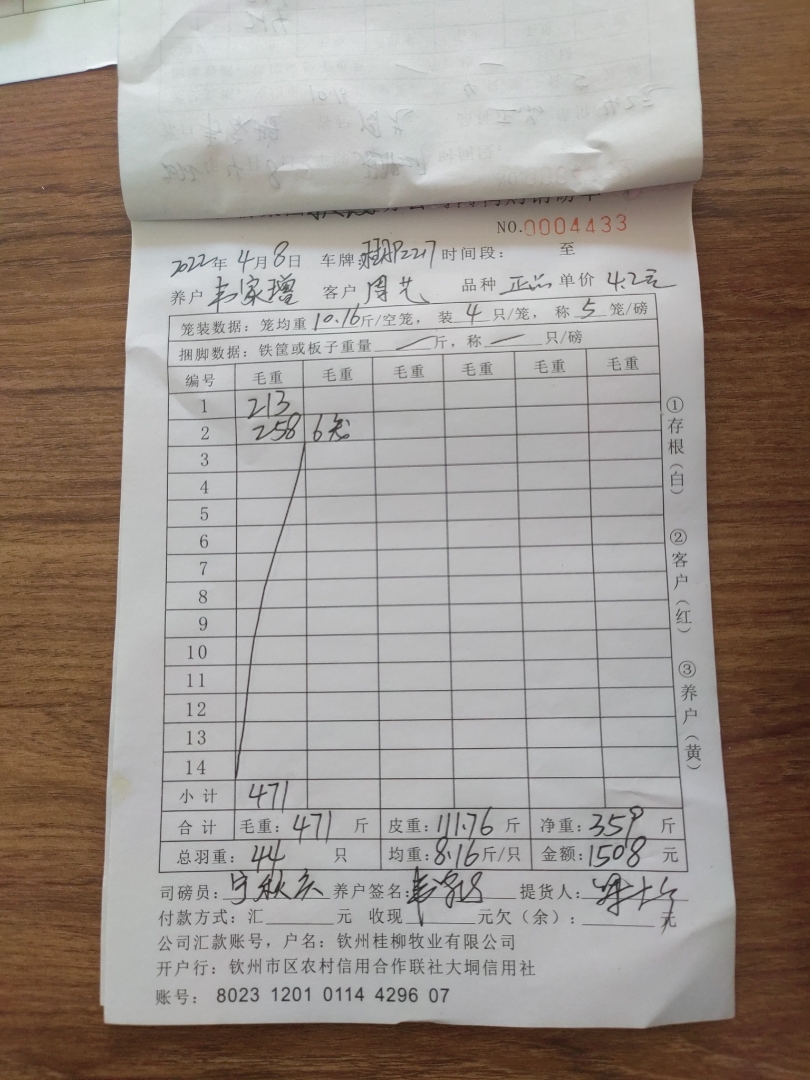 NO.0004433
2022年 4月8日 车牌: 2217 时间段: 至
养户 韦家增 客户 周艺 品种 正品 单价 4.2元
笼装数据: 笼均重 10.16 斤/空笼, 装 4 只/笼, 称 5 笼/磅
捆脚数据: 铁筐或板子重量 — 斤, 称 — 只/磅
编号 毛重 毛重 毛重 毛重 毛重 毛重
1 213
2 258 6笼
3
4
5
6
7
8
9
10
11
12
13
14
小计 471
合计 毛重: 471 斤 皮重: 111.76 斤 净重: 359 斤
总羽重: 44 只 均重: 8.16 斤/只 金额: 1508 元
司磅员: 养户签名: 提货人:
付款方式: 汇 元 收现 元 欠(余): 元
公司汇款账号, 户名: 钦州桂柳牧业有限公司
开户行: 钦州市区农村信用合作联社大垌信用社
账号: 8023 1201 0114 4296 07
①存根(白)
②客户(红)
③养户(黄)